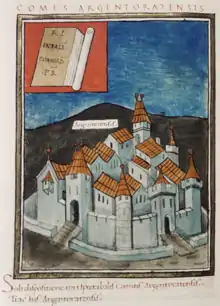 COMES ARGENTORATENSIS
PR
Argentoratensis
Sub dispositione viri spectabilis Comitis Argentoratensis
Tractus Argentoratensis